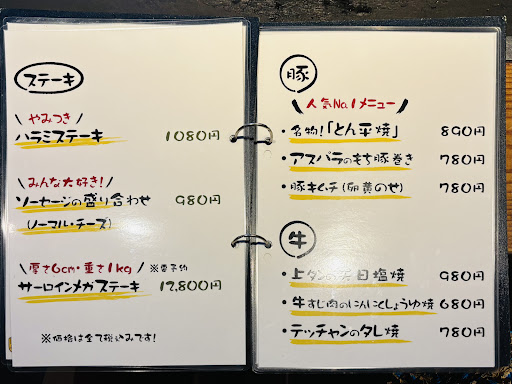 ステーキ
\ やみつき /
ハラミステーキ 1080円
\ みんな大好き! /
ソーセージの盛り合わせ 980円
(ノーマル・チーズ)
\ 厚さ6cm・重さ1kg / ※要予約
サーロインメガステーキ 12,800円
※価格は全て税込みです!
豚
\ 人気No.1メニュー /
・名物!「とん平焼」 890円
・アスパラのもち豚巻き 780円
・豚キムチ(卵黄のせ) 780円
牛
・上タンの天日塩焼 980円
・牛すじ肉のにんにくしょうゆ焼 680円
・テッチャンのタレ焼 780円